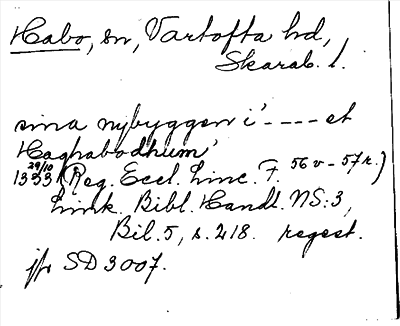 Habo, sn, Vartofta hd,
Skarab. l.
sina nybyggen i' - - - - et
Haghabodhum'
29/10
1333 (Reg. Eccl. Linc. F. 56 v - 57 r.)
Link. Bibl. Handl. NS: 3,
Bil. 5, s. 218. regest.
jfr SD 3007.